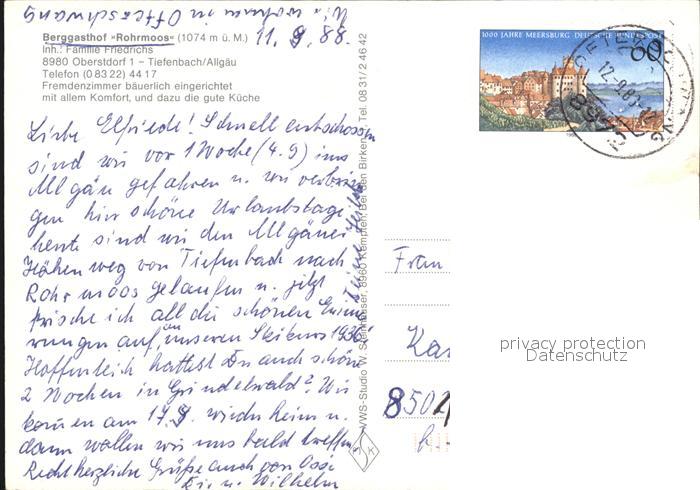 Wir wohnen in Ofterschwang
11. 9. 88.
Berggasthof «Rohrmoos» (1074 m ü. M.)
Inh.: Familie Friedrichs
8980 Oberstdorf 1 – Tiefenbach/Allgäu
Telefon (0 83 22) 44 17
Fremdenzimmer bäuerlich eingerichtet
mit allem Komfort, und dazu die gute Küche
Liebe Elfriede! Schnell entschlossen
sind wir vor 1 Woche (4.9) ins
Allgäu gefahren u. wir verbrin
gen hier schöne Urlaubstage.
heute sind wir den Allgäuer
Höhenweg von Tiefenbach nach
Rohrmoos gelaufen u. jetzt
frische ich all die schönen Erinne
rungen auf, an unseren Skikurs 1936
Hoffentlich hattest Du auch schöne
2 Wochen in Grindelwald? Wir
kommen am 17.9. wieder heim u.
dann wollen wir uns bald treffen.
Recht herzliche Grüße auch von Ossi
Deine Hilde
u. Wilhelm
VWS-Studio W. Steinhauser, 8960 Kempten, Bei den Birken, Tel. 08 31/2 46 42
1000 JAHRE MEERSBURG DEUTSCHE BUNDESPOST
60
Frau
8502
privacy protection
Datenschutz